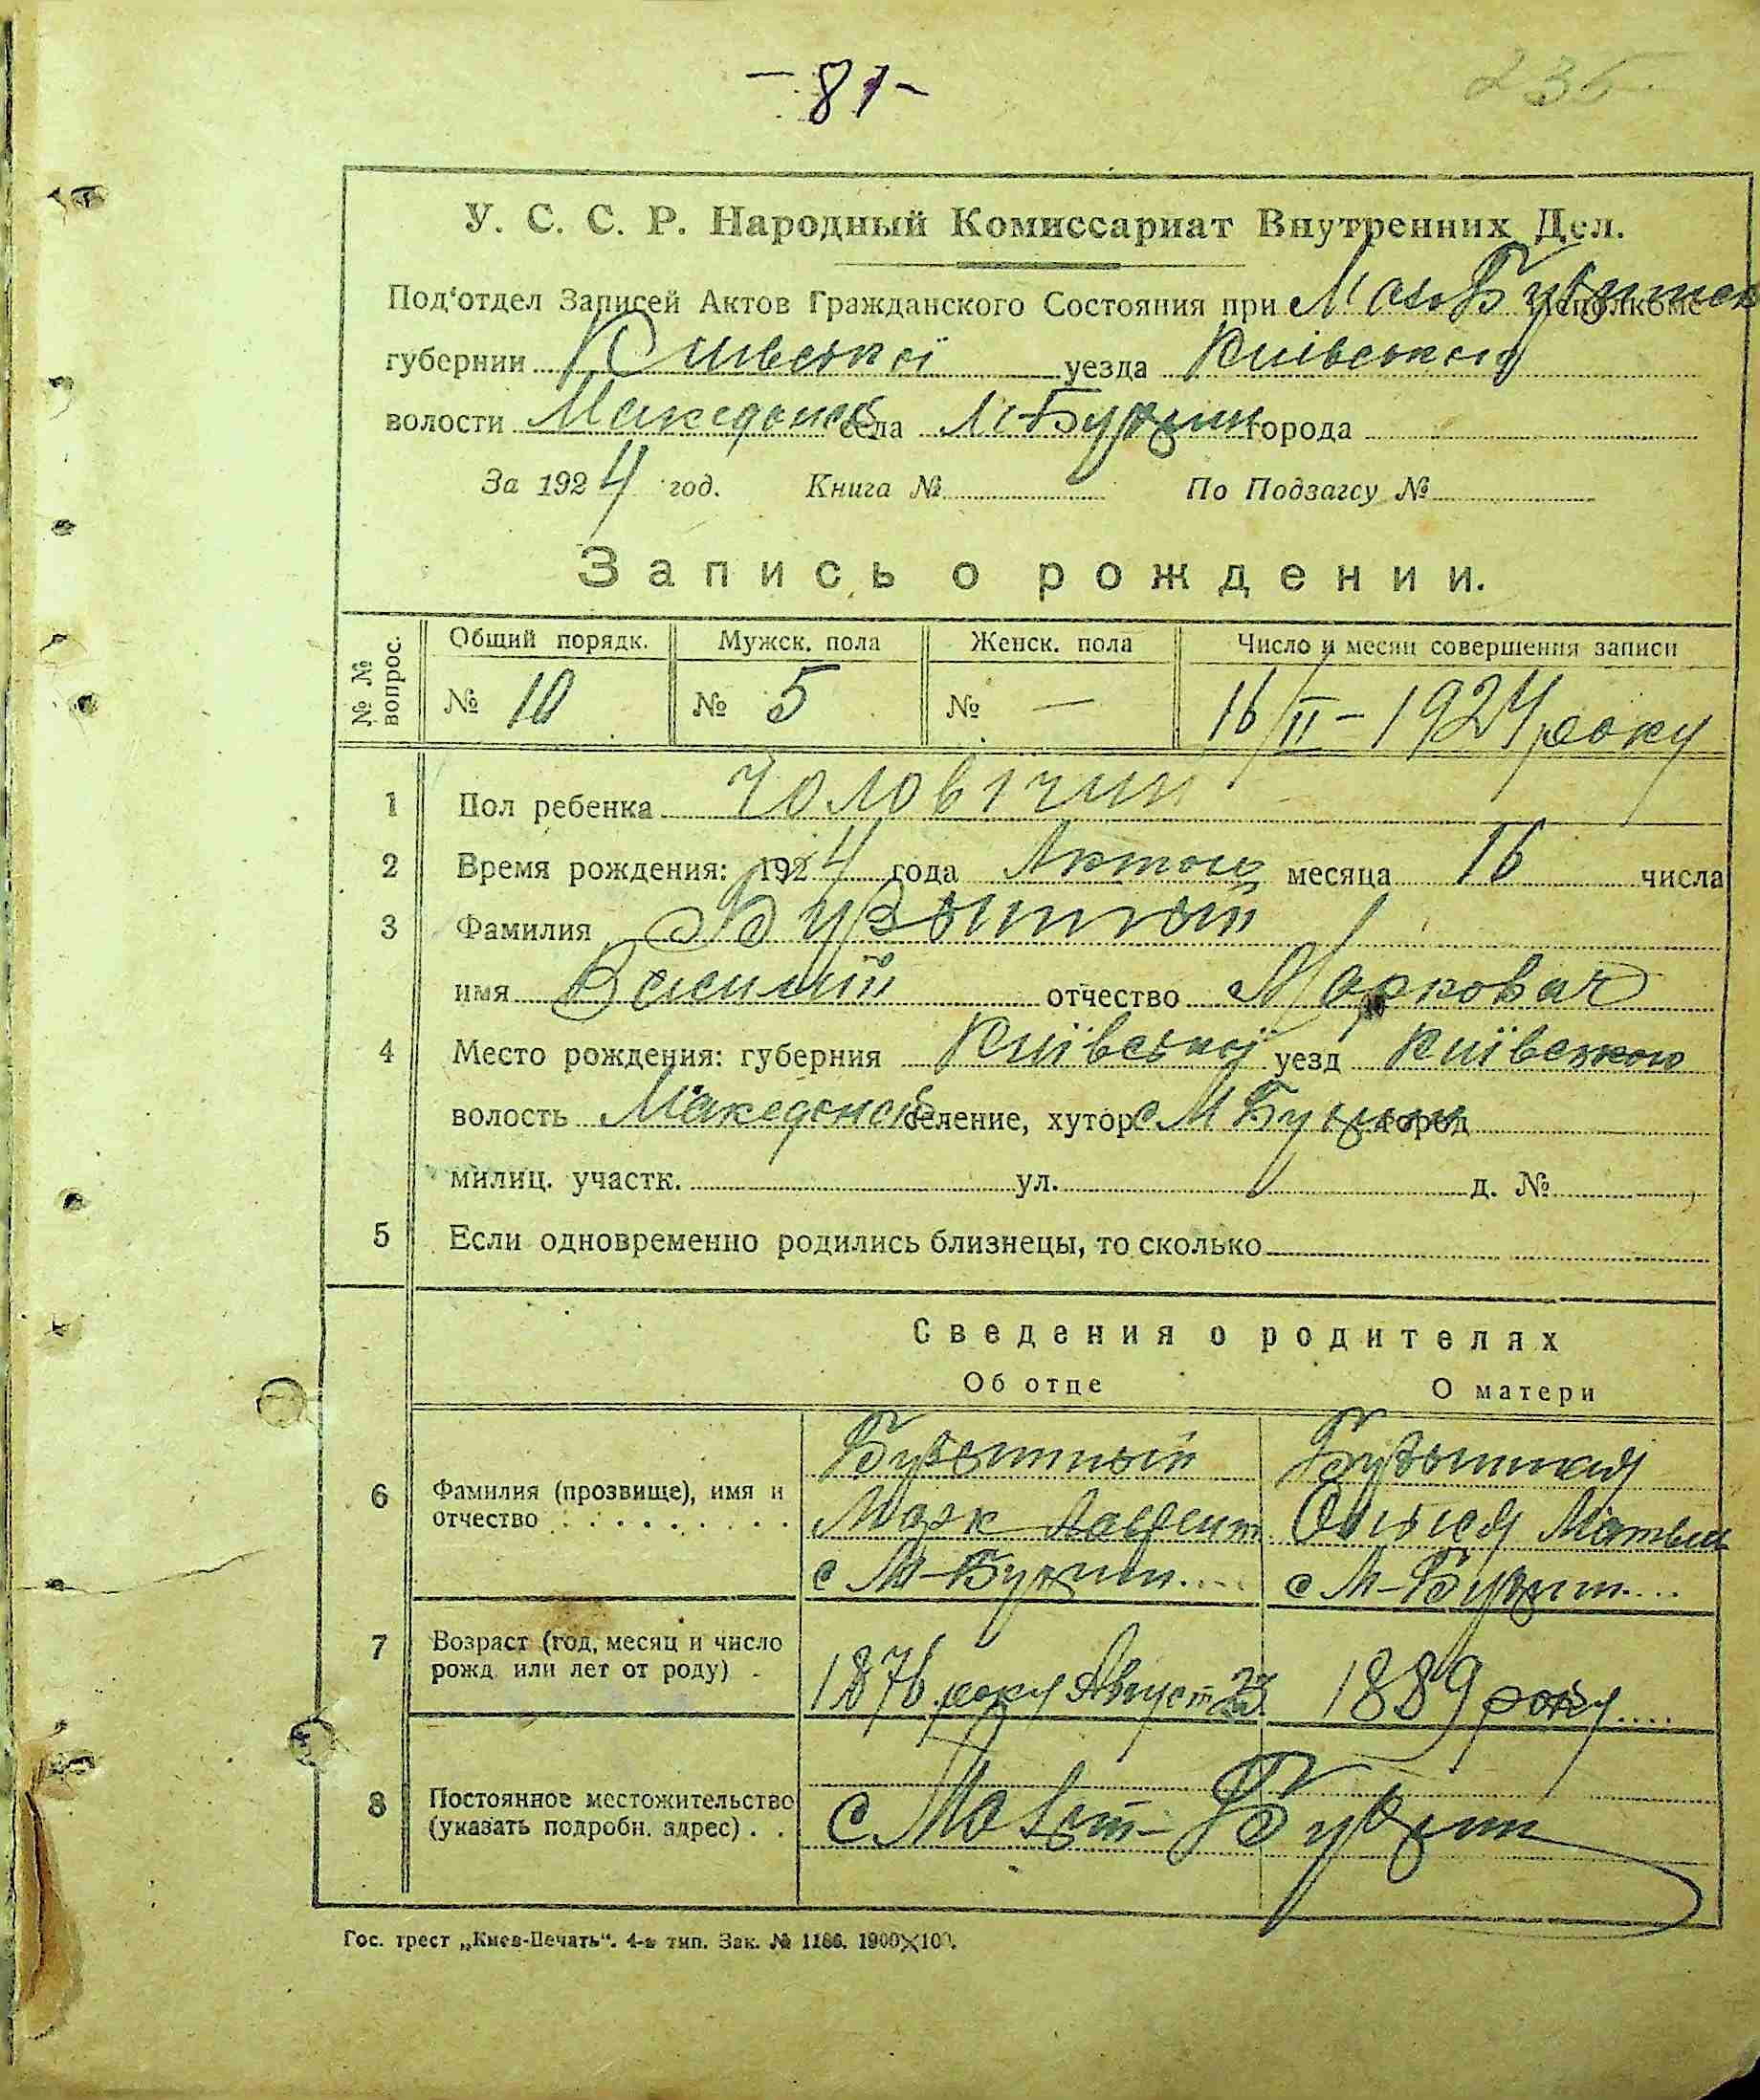 - 81 -
235
У. С. С. Р. Народный Комиссариат Внутренних Дел.
Под'отдел Записей Актов Гражданского Состояния при Исполкоме
губернии Київської уезда Київського
волости Македонск села М-Букрин города
За 1924 год. Книга № По Подзагсу №
Запись о рождении.
№ № вопрос. Общий порядк. Мужск. пола Женск. пола Число и месяц совершения записи
№ 10 № 5 № — 16/II - 1924 року
1 Пол ребенка Чоловічий
2 Время рождения: 1924 года месяца 16 числа
3 Фамилия
имя Василий отчество Маркович
4 Место рождения: губерния Київської уезд Київського
волость Македонск селение, хутор с М Букрин город
милиц. участк. ул. д. №
5 Если одновременно родились близнецы, то сколько
Сведения о родителях
Об отце О матери
6 Фамилия (прозвище), имя и отчество
Марк
с М-Букрин с М-Букрин
7 Возраст (год, месяц и число рожд. или лет от роду) 1876 року Август 23 1889 року
8 Постоянное местожительство (указать подробн. адрес) с Букрин
Гос. трест „Киев-Печать". 4-я тип. Зак. № 1186. 1900×100.